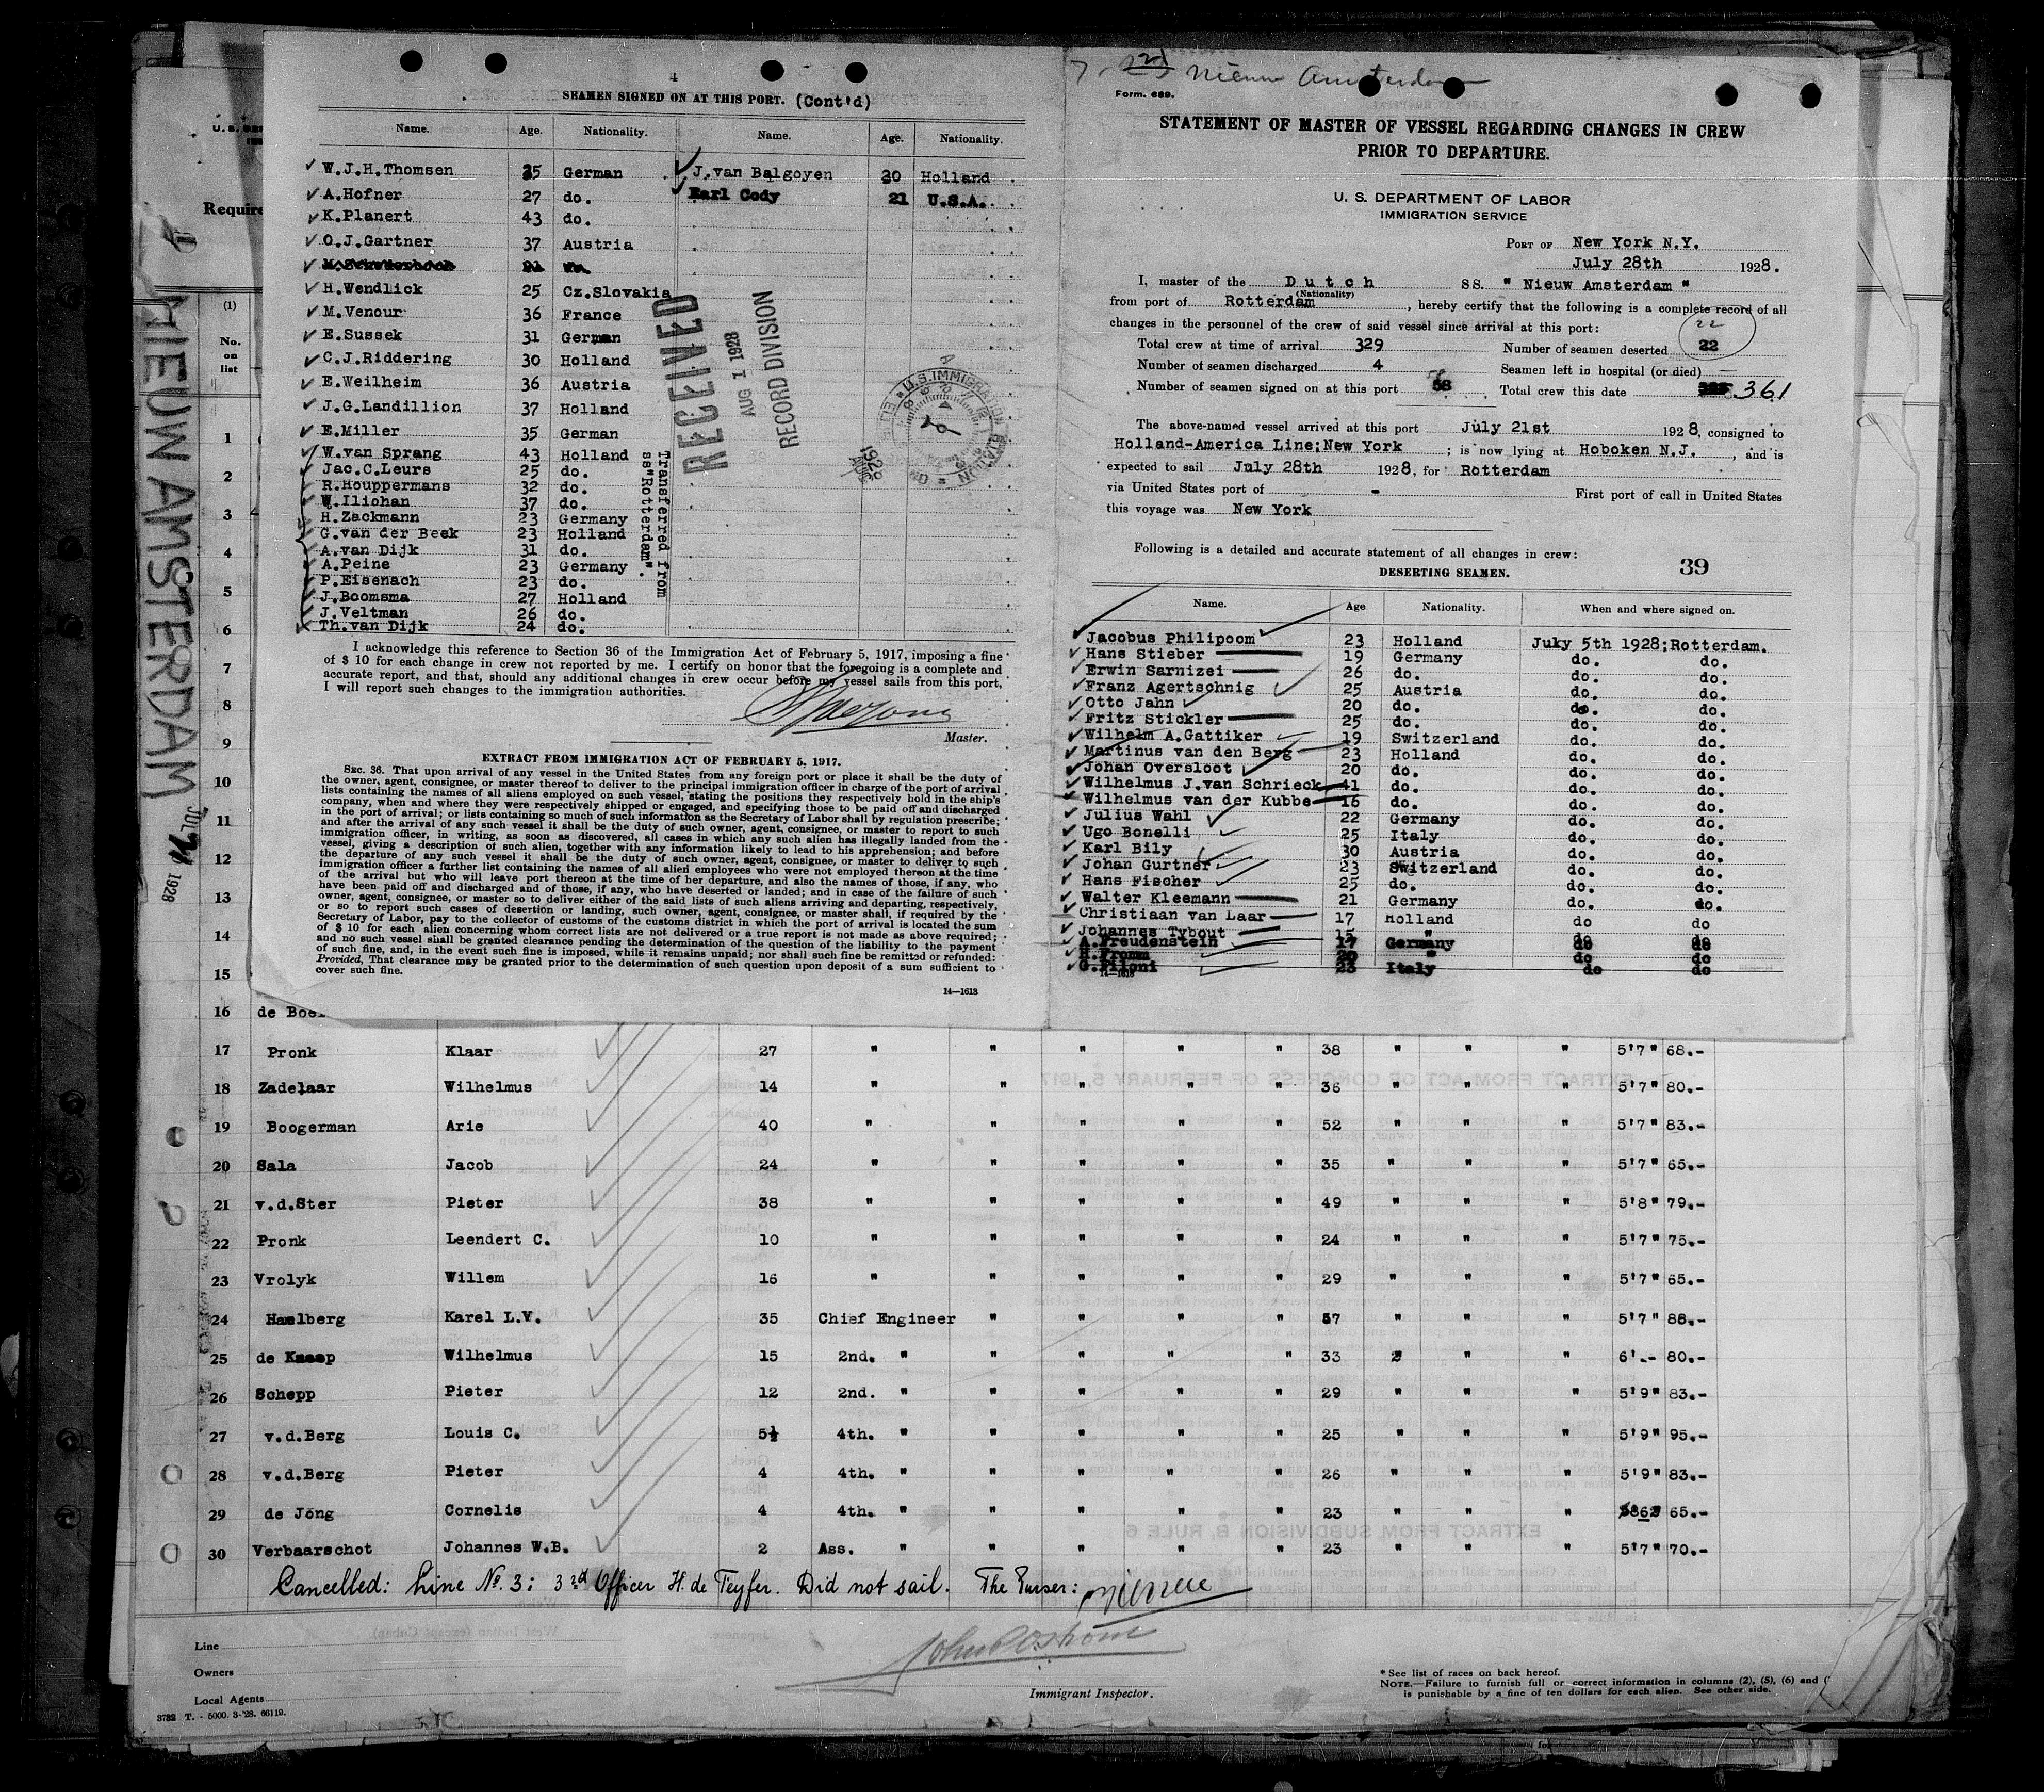 4
SEAMEN SIGNED ON AT THIS PORT. (Cont'd)
Name. Age. Nationality. Name. Age. Nationality.
W.J.H.Thomsen 35 German J.van Balgoyen 30 Holland
A.Hofner 27 do. Earl Cody 21 U.S.A.
K.Planert 43 do.
O.J.Gartner 37 Austria
H.Wendlick 25 Cz.Slovakia
M.Venour 36 France
E.Sussek 31 German
C.J.Riddering 30 Holland
E.Weilheim 36 Austria
J.G.Landillion 37 Holland
E.Miller 35 German
W.van Sprang 43 Holland
Jac.C.Leurs 25 do.
R.Houppermans 32 do.
W.Iliohan 37 do.
H.Zackmann 23 Germany
G.van der Beek 23 Holland
A.van Dijk 31 do.
A.Peine 23 Germany
P.Eisenach 23 do.
J.Boomsma 27 Holland
J.Veltman 26 do.
Th.van Dijk 24 do.
Transferred from
ss"Rotterdam".
RECEIVED
AUG 1 1928
RECORD DIVISION
U.S. IMMIGRATION STATION
1928
I acknowledge this reference to Section 36 of the Immigration Act of February 5, 1917, imposing a fine
of $ 10 for each change in crew not reported by me. I certify on honor that the foregoing is a complete and
accurate report, and that, should any additional changes in crew occur before my vessel sails from this port,
I will report such changes to the immigration authorities.
Master.
EXTRACT FROM IMMIGRATION ACT OF FEBRUARY 5, 1917.
SEC. 36. That upon arrival of any vessel in the United States from any foreign port or place it shall be the duty of
the owner, agent, consignee, or master thereof to deliver to the principal immigration officer in charge of the port of arrival
lists containing the names of all aliens employed on such vessel, stating the positions they respectively hold in the ship's
company, when and where they were respectively shipped or engaged, and specifying those to be paid off and discharged
in the port of arrival; or lists containing so much of such information as the Secretary of Labor shall by regulation prescribe;
and after the arrival of any such vessel it shall be the duty of such owner, agent, consignee, or master to report to such
immigration officer, in writing, as soon as discovered, all cases in which any such alien has illegally landed from the
vessel, giving a description of such alien, together with any information likely to lead to his apprehension; and before
the departure of any such vessel it shall be the duty of such owner, agent, consignee, or master to deliver to such
immigration officer a further list containing the names of all alien employees who were not employed thereon at the time
of the arrival but who will leave port thereon at the time of her departure, and also the names of those, if any, who
have been paid off and discharged and of those, if any, who have deserted or landed; and in case of the failure of such
owner, agent, consignee, or master so to deliver either of the said lists of such aliens arriving and departing, respectively,
or so to report such cases of desertion or landing, such owner, agent, consignee, or master shall, if required by the
Secretary of Labor, pay to the collector of customs of the customs district in which the port of arrival is located the sum
of $ 10 for each alien concerning whom correct lists are not delivered or a true report is not made as above required;
and no such vessel shall be granted clearance pending the determination of the question of the liability to the payment
of such fine, and, in the event such fine is imposed, while it remains unpaid; nor shall such fine be remitted or refunded:
Provided, That clearance may be granted prior to the determination of such question upon deposit of a sum sufficient to
cover such fine.
14—1613
Nieuw Amsterdam
Form. 689.
STATEMENT OF MASTER OF VESSEL REGARDING CHANGES IN CREW
PRIOR TO DEPARTURE.
U. S. DEPARTMENT OF LABOR
IMMIGRATION SERVICE
PORT OF New York N.Y.
July 28th 1928.
I, master of the Dutch SS. " Nieuw Amsterdam "
(Nationality)
from port of Rotterdam, hereby certify that the following is a complete record of all
changes in the personnel of the crew of said vessel since arrival at this port:
22
Total crew at time of arrival 329 Number of seamen deserted 22
Number of seamen discharged 4 Seamen left in hospital (or died) —
Number of seamen signed on at this port 58 Total crew this date 361
The above-named vessel arrived at this port July 21st 1928, consigned to
Holland-America Line;New York ; is now lying at Hoboken N.J. , and is
expected to sail July 28th 1928, for Rotterdam
via United States port of - First port of call in United States
this voyage was New York
Following is a detailed and accurate statement of all changes in crew:
DESERTING SEAMEN. 39
Name. Age Nationality. When and where signed on.
Jacobus Philipoom 23 Holland Juky 5th 1928;Rotterdam.
Hans Stieber 19 Germany do. do.
Erwin Sarnizei 26 do. do. do.
Franz Agertschnig 25 Austria do. do.
Otto Jahn 20 do. do. do.
Fritz Stickler 25 do. do. do.
Wilhelm A.Gattiker 19 Switzerland do. do.
Martinus van den Berg 23 Holland do. do.
Johan Oversloot 20 do. do. do.
Wilhelmus J.van Schrieck 41 do. do. do.
Wilhelmus van der Kubbe 16 do. do. do.
Julius Wahl 22 Germany do. do.
Ugo Bonelli 25 Italy do. do.
Karl Bily 30 Austria do. do.
Johan Gurtner 23 Switzerland do. do.
Hans Fischer 25 do. do. do.
Walter Kleemann 21 Germany do. do.
Christiaan van Laar 17 Holland do do
Johannes Tybout 15 " do do
A.Freudenstein 17 Germany do do
H.Fromm 20 " do do
G.Piloni 23 Italy do do
14—1613
NIEUW AMSTERDAM
JUL 1928
Require
(1)
No.
on
list
1
2
3
4
5
6
7
8
9
10
11
12
13
14
15
16 de Boer
17 Pronk Klaar 27 " " " " " 38 " " " 5'7" 68.-
18 Zadelaar Wilhelmus 14 " " " " " 36 " " " 5'7" 80.-
19 Boogerman Arie 40 " " " " " 52 " " " 5'7" 83.-
20 Sala Jacob 24 " " " " " 35 " " " 5'7" 65.-
21 v.d.Ster Pieter 38 " " " " " 49 " " " 5'8" 79.-
22 Pronk Leendert C. 10 " " " " " 24 " " " 5'7" 75.-
23 Vrolyk Willem 16 " " " " " 29 " " " 5'7" 65.-
24 Haelberg Karel L.V. 35 Chief Engineer " " " " 57 " " " 5'7" 88.-
25 de Knoop Wilhelmus 15 2nd. " " " " " 33 " " " 6'.- 80.-
26 Schepp Pieter 12 2nd. " " " " " 29 " " " 5'9" 83.-
27 v.d.Berg Louis C. 5½ 4th. " " " " " 25 " " " 5'9" 95.-
28 v.d.Berg Pieter 4 4th. " " " " " 26 " " " 5'9" 83.-
29 de Jong Cornelis 4 4th. " " " " " 23 " " " 65.-
30 Verbaarschot Johannes W.B. 2 Ass. " " " " " 23 " " " 5'7" 70.-
Cancelled: Line No. 3: 3rd Officer H. de Teyfer. Did not sail. The Purser:
Line
Owners
Local Agents
3732 T. - 5000. 3-'28. 66119.
Immigrant Inspector.
* See list of races on back hereof.
NOTE.—Failure to furnish full or correct information in columns (2), (5), (6) and (
is punishable by a fine of ten dollars for each alien. See other side.